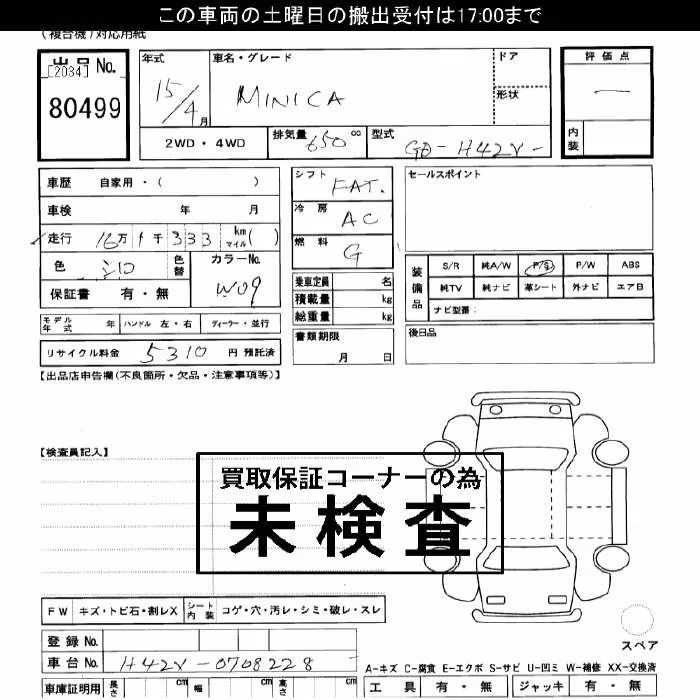 この車両の土曜日の搬出受付は17:00まで
(複合機)対応用紙
出品 No.
[2034]
80499
年式
15/4月
車名・グレード
MINICA
ドア
形状
評価点
—
内装
2WD・4WD
排気量 650 cc
型式 GD-H42V-
車歴 自家用・( )
車検 年 月
走行 16万1千333 km マイル( )
色 シロ 色替
カラーNo. W09
保証書 有・無
シフト FAT.
冷房 AC
燃料 G
乗車定員 名
積載量 kg
総重量 kg
セールスポイント
装備品
S/R 純A/W P/S P/W ABS
純TV 純ナビ 革シート 外ナビ エアB
ナビ型番:
モデル年式 年 ハンドル 左・右 ディーラー・並行
書類期限
月 日
後日品
リサイクル料金 5310 円 預託済
【出品店申告欄(不良箇所・欠品・注意事項等)】
【検査員記入】
買取保証コーナーの為
未検査
FW キズ・トビ石・割レX シート内装 コゲ・穴・汚レ・シミ・破レ・スレ
登録 No.
車台 No. H42V-0708228
スペア
A-キズ C-腐食 E-エクボ S-サビ U-凹ミ W-補修 XX-交換済
車庫証明用 長さ cm 幅 cm 高さ cm
工具 有・無 ジャッキ 有・無